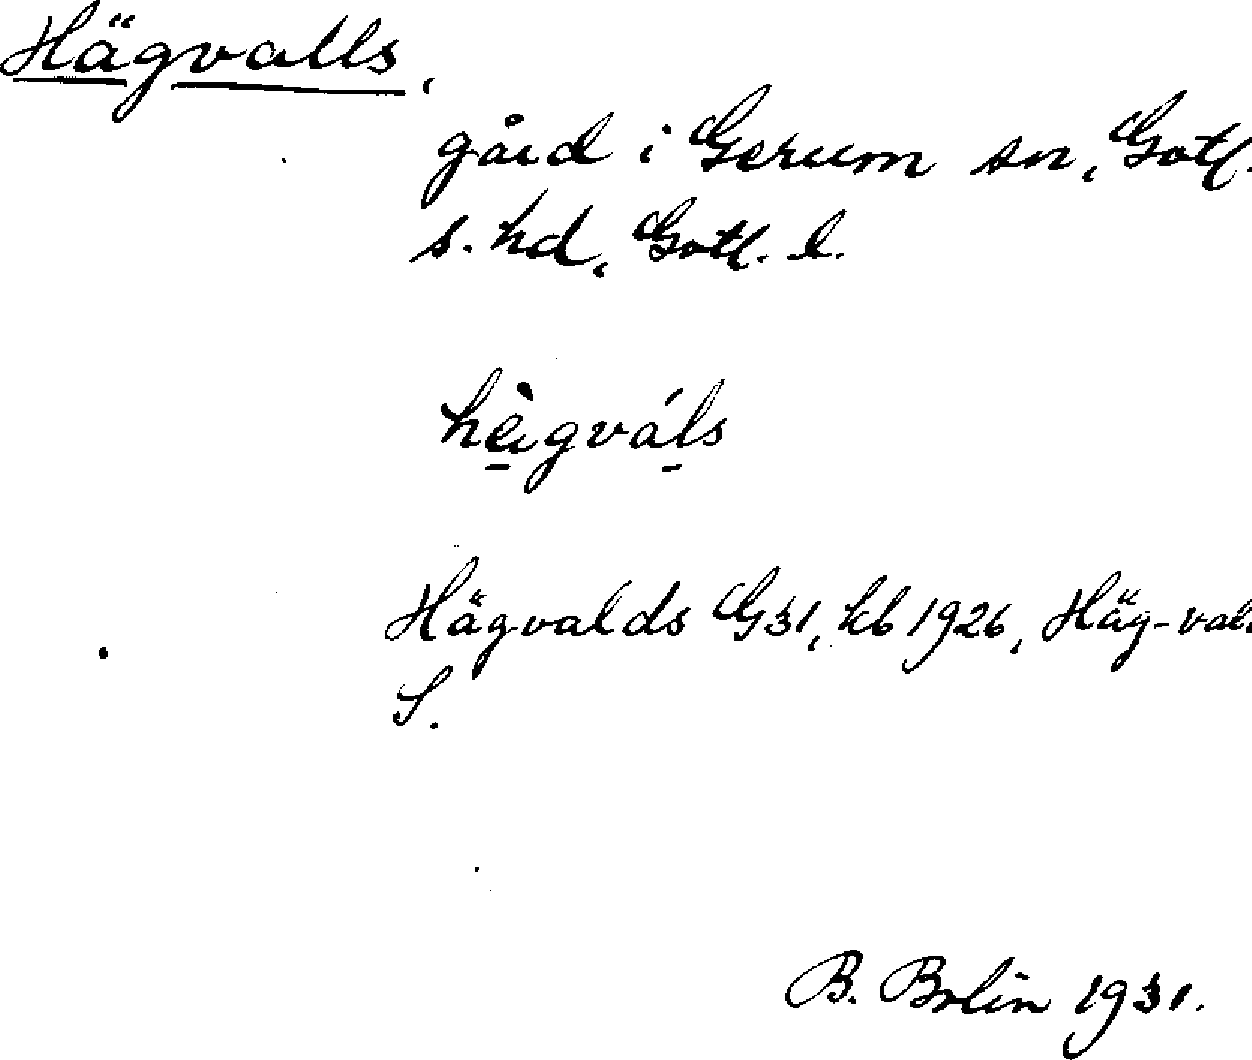 Hägvalls,
gård i Gerum sn, Gotl.
s. hd, Gotl. l.
hègváls
Hägvalds G31, kb 1926, Häg-val
S.
B. Bolin 1931.